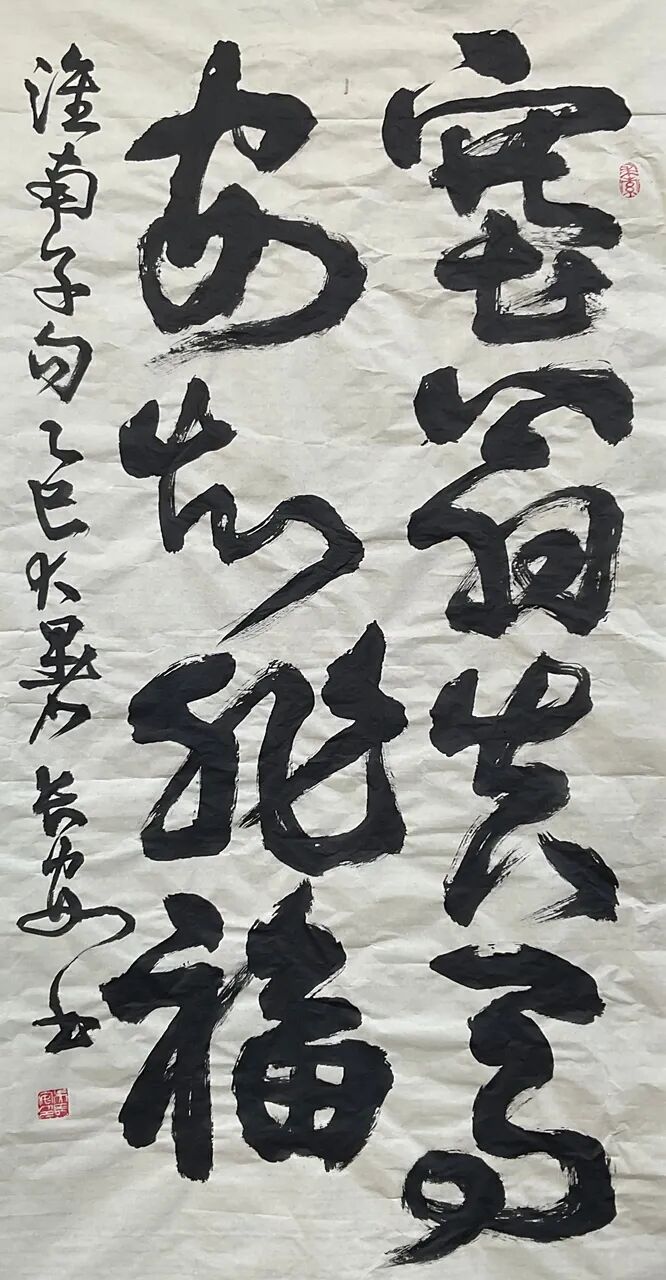 塞翁失馬
安知非福
淮南子句乙巳大暑長安書